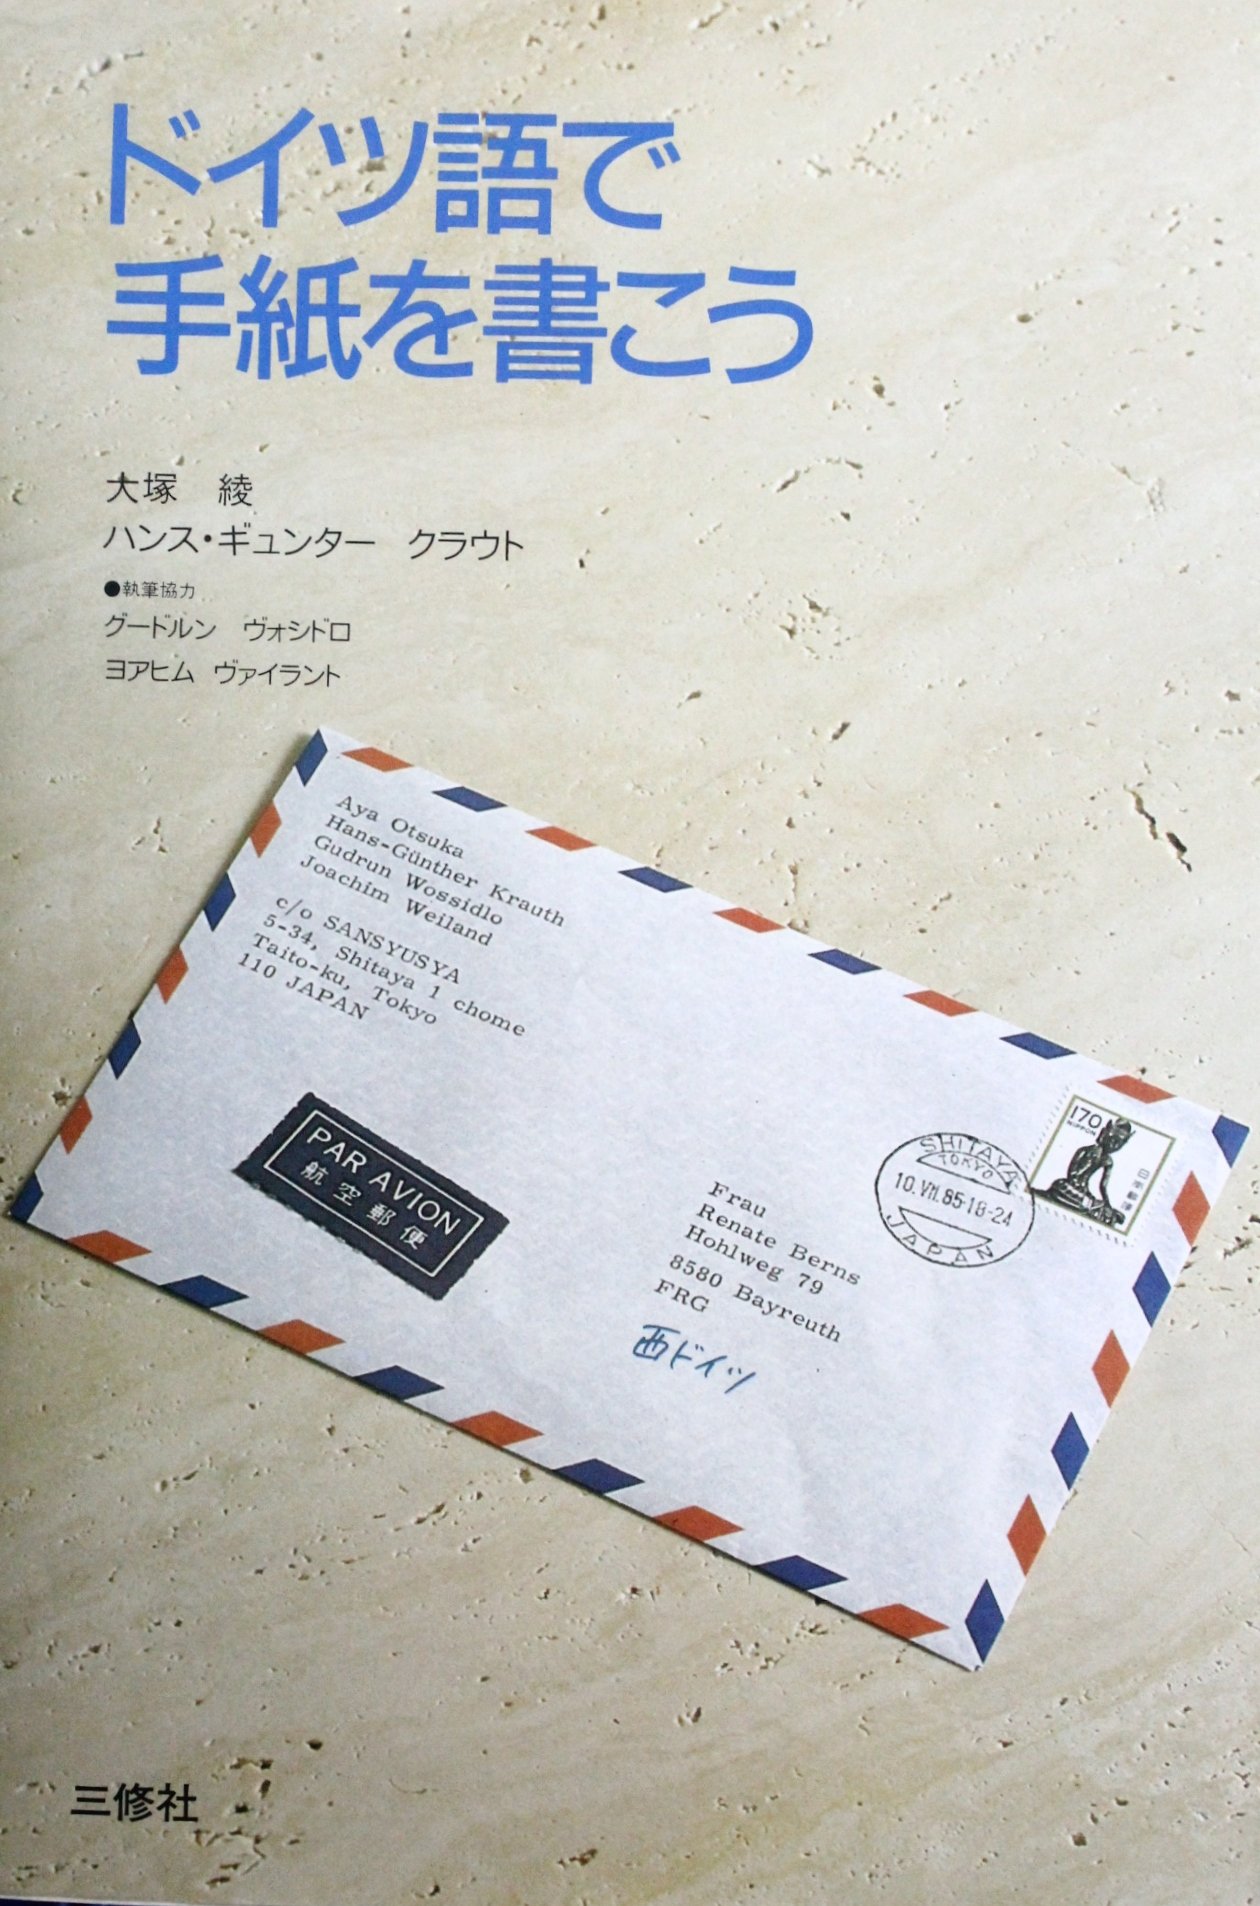 ドイツ語で
手紙を書こう
大塚 綾
ハンス・ギュンター クラウト
●執筆協力
グードルン ヴォシドロ
ヨアヒム ヴァイラント
Aya Otsuka
Hans-Günther Krauth
Gudrun Wossidlo
Joachim Weiland
c/o SANSYUSYA
5-34, Shitaya 1 chome
Taito-ku, Tokyo
110 JAPAN
PAR AVION
航空郵便
170
NIPPON
日本郵便
SHITAYA
TOKYO
10.VIII.85·18-24
JAPAN
Frau
Renate Berns
Hohlweg 79
8580 Bayreuth
FRG
西ドイツ
三修社